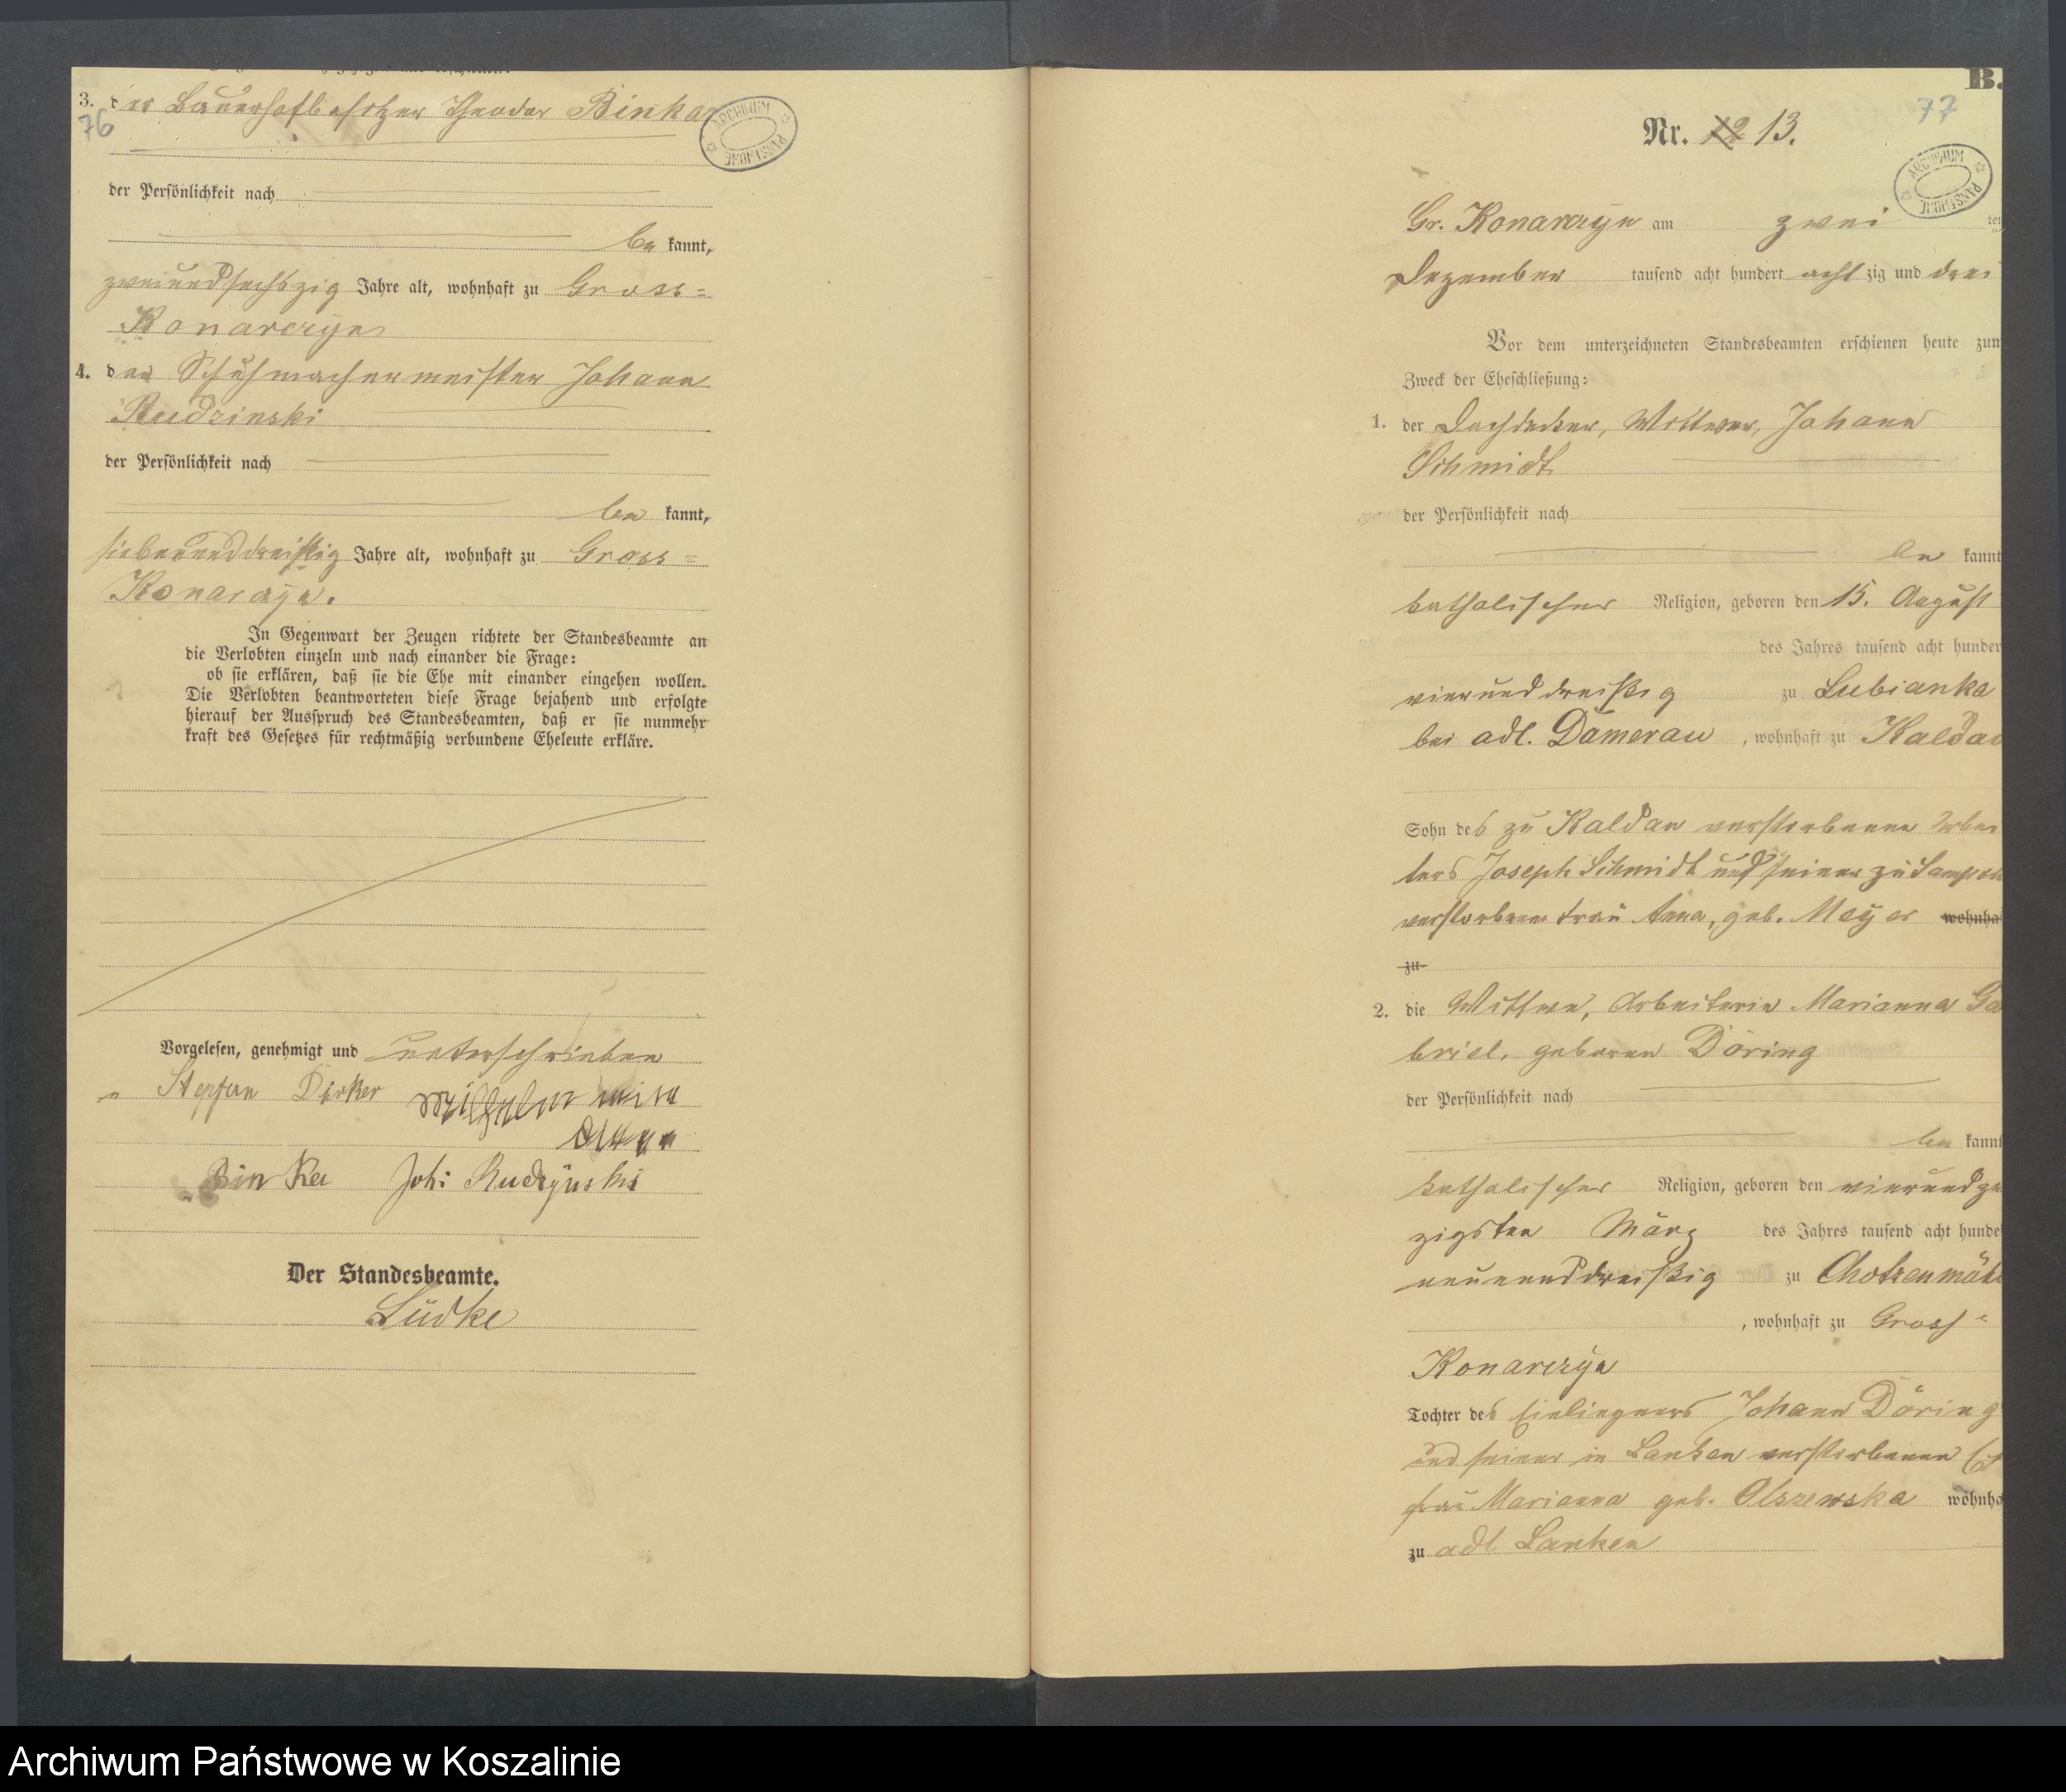 3. der Bauerhofbesitzer Theodor Binka
76
der Persönlichkeit nach
be kannt,
zweiundsechszig Jahre alt, wohnhaft zu Gross=
Konarczyn
4. der Schuhmachermeister Johann
Rudzinski
der Persönlichkeit nach
be kannt,
siebenunddreißig Jahre alt, wohnhaft zu Gross=
Konarczyn.
In Gegenwart der Zeugen richtete der Standesbeamte an
die Verlobten einzeln und nach einander die Frage:
ob sie erklären, daß sie die Ehe mit einander eingehen wollen.
Die Verlobten beantworteten diese Frage bejahend und erfolgte
hierauf der Ausspruch des Standesbeamten, daß er sie nunmehr
kraft des Gesetzes für rechtmäßig verbundene Eheleute erkläre.
Vorgelesen, genehmigt und unterschrieben
Stepfan Dirker Wilhelmina
Binka Joh: Rudzynski
Der Standesbeamte.
Lüdke
ARCHIWUM PAŃSTWOWE
B.
77
Nr. 12 13.
ARCHIWUM PAŃSTWOWE
Gr. Konarczyn am zwei ten
Dezember tausend acht hundert acht zig und drei
Vor dem unterzeichneten Standesbeamten erschienen heute zum
Zweck der Eheschließung:
1. der Dachdecker, Wittwer, Johann
Schmidt
der Persönlichkeit nach
be kannt
katholischer Religion, geboren den 15. August
des Jahres tausend acht hunder
vierunddreißig zu Lubianka
bei adl. Damerau, wohnhaft zu Kaldau
Sohn des zu Kaldau verstorbenen Arbei
ters Joseph Schmidt und seiner zu Sampohl
verstorbenen Frau Anna, geb. Meyer wohnha
zu
2. die Wittwe, Arbeiterin Marianna Ga
briel, geboren Döring
der Persönlichkeit nach
be kannt
katholischer Religion, geboren den vierundzw
zigsten März des Jahres tausend acht hunde
neununddreißig zu Chotzenmühl
, wohnhaft zu Gross=
Konarczyn
Tochter des Einliegners Johann Döring
und seiner in Lanken verstorbenen Eh
frau Marianna geb. Olszewska wohnha
zu adl Lanken
Archiwum Państwowe w Koszalinie